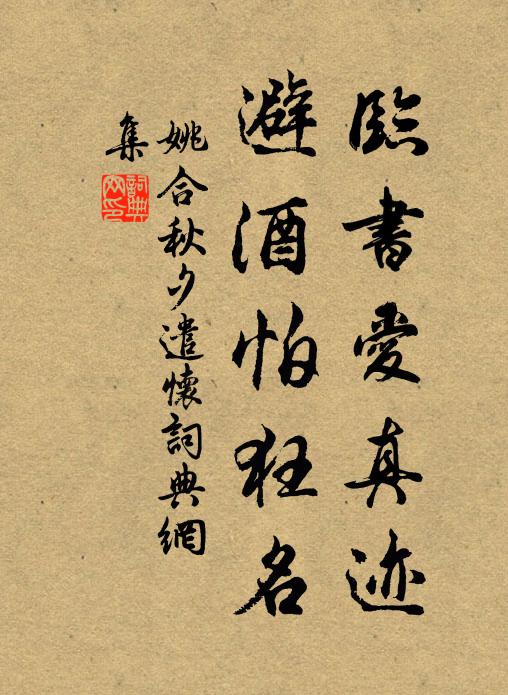 臨書愛真迹
避酒怕狂名
姚合秋夕遣懷詞典網
集
詞典
网印